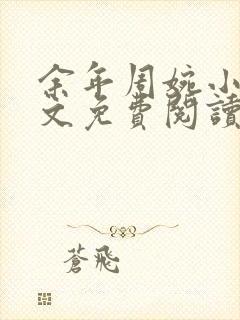 余年周婉小
文免費閱讀
蒼飛